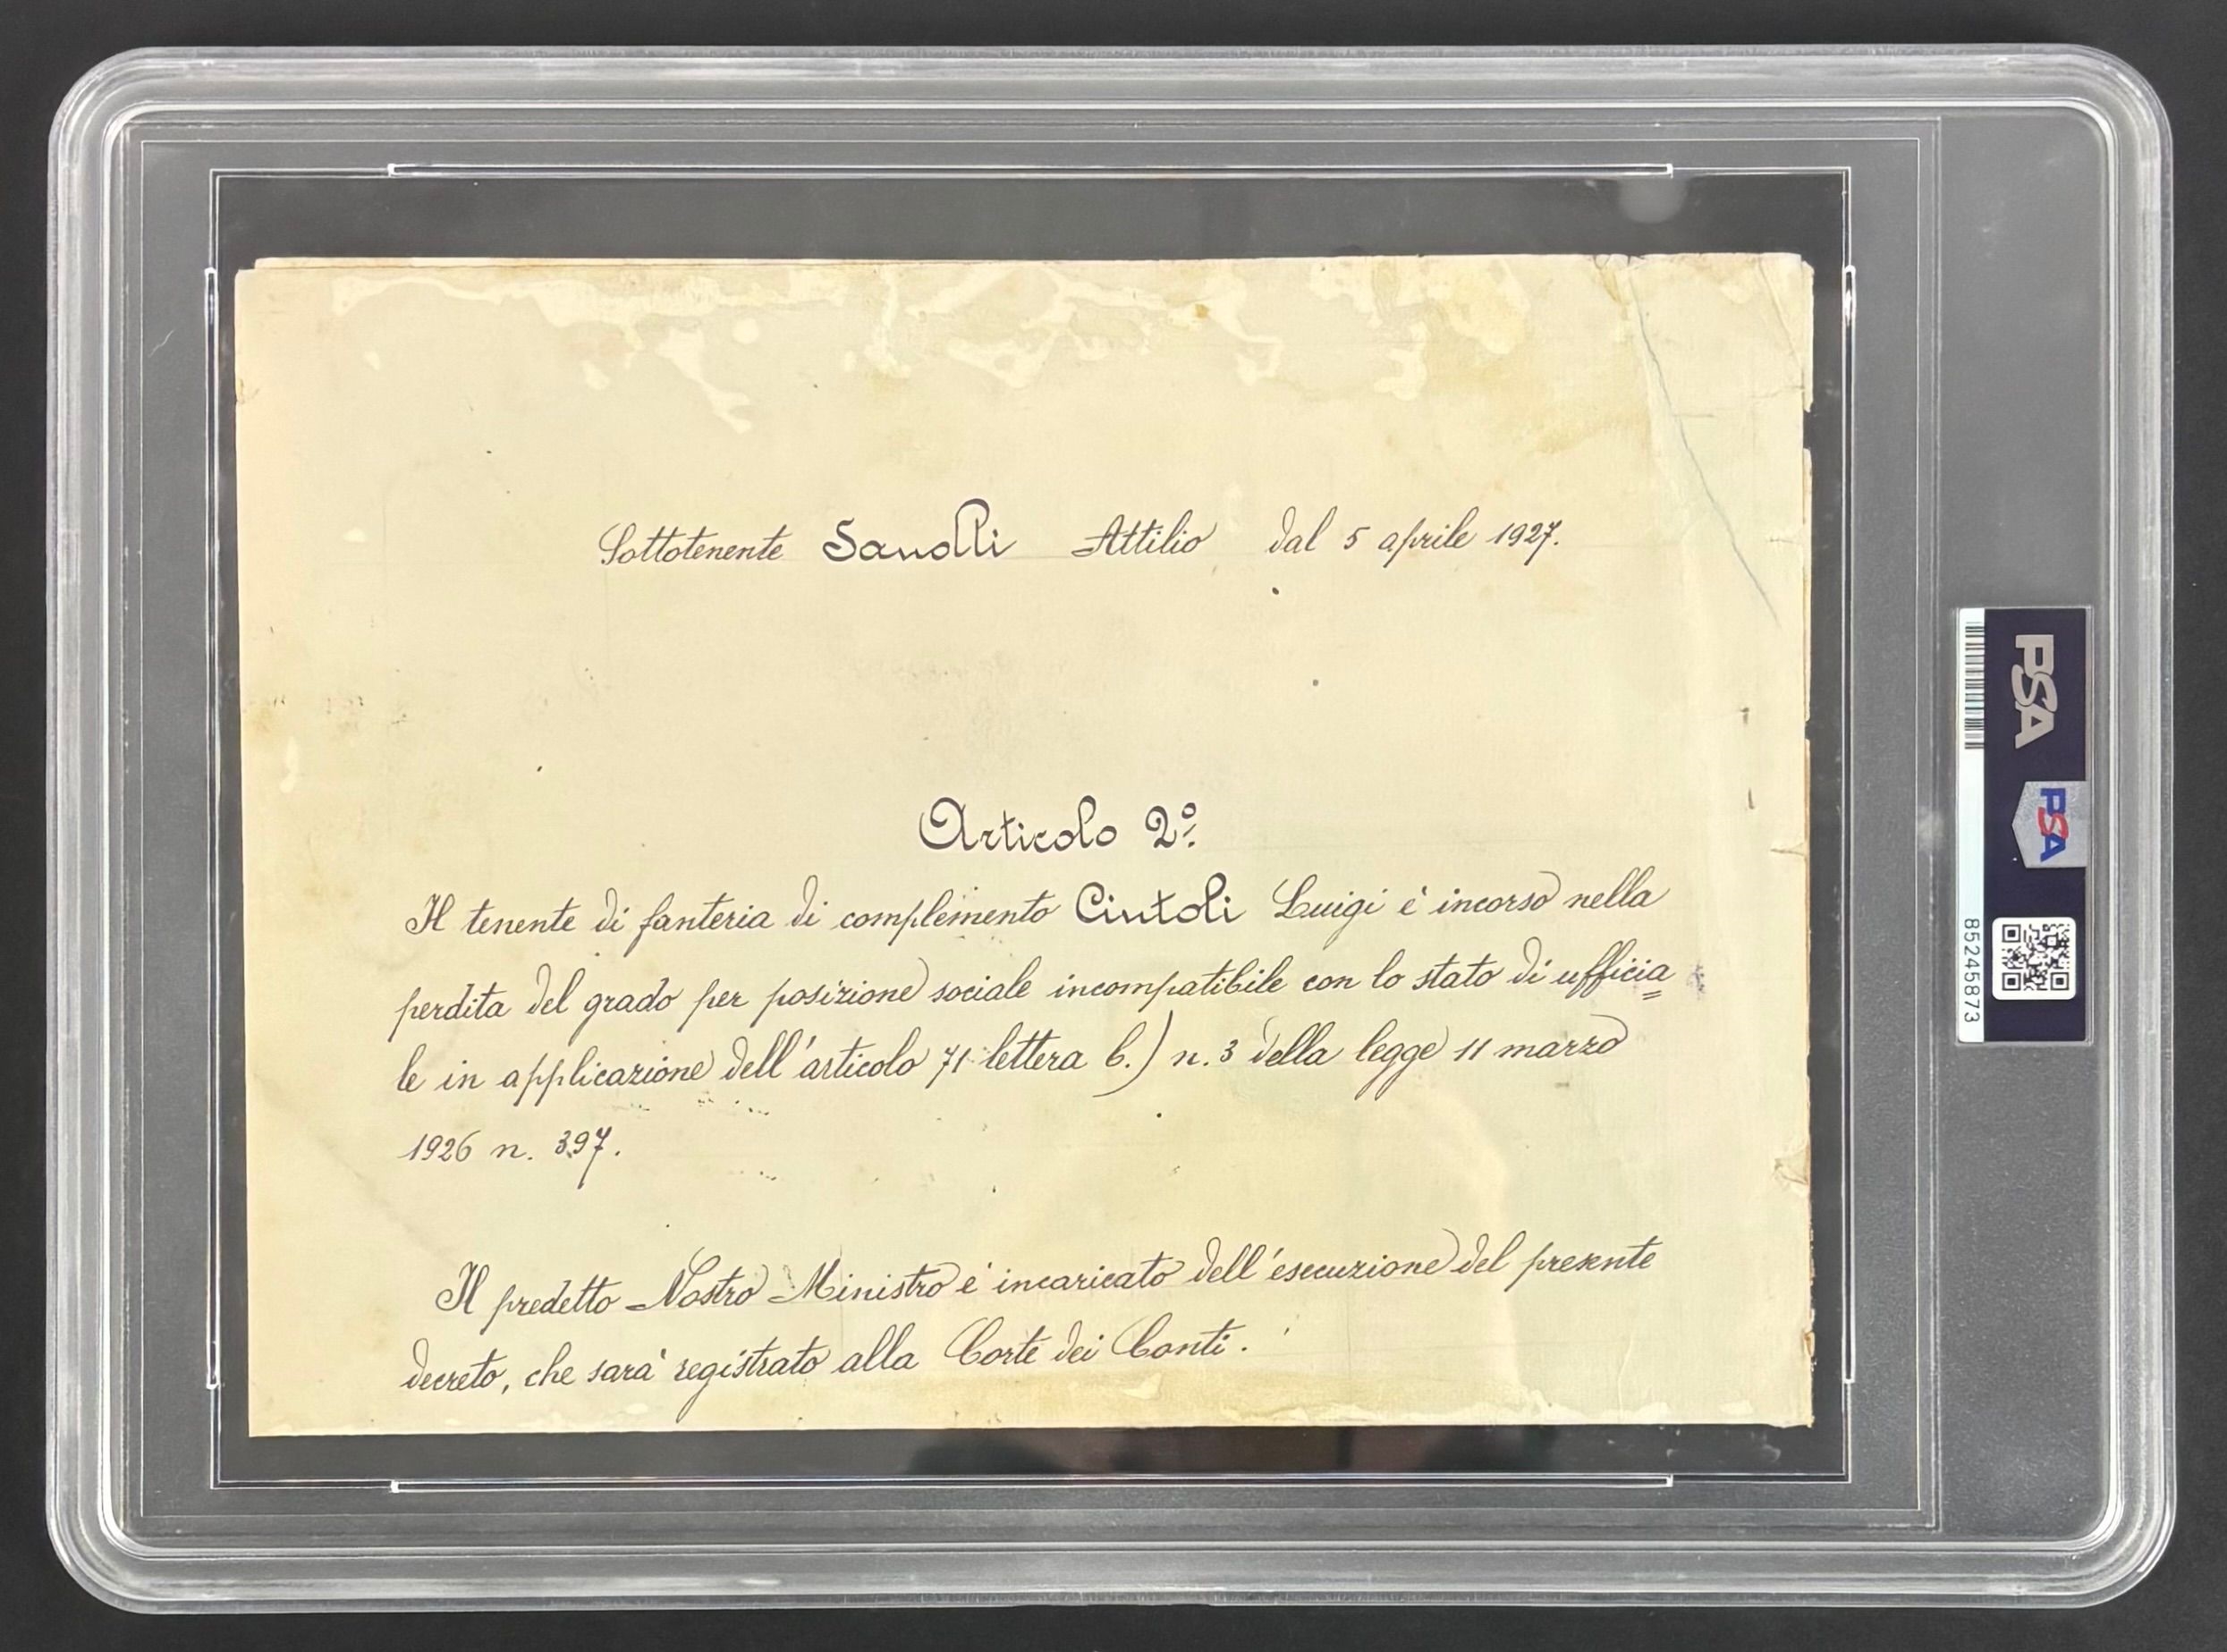 Sottotenente Sanolli Attilio dal 5 aprile 1927.
Articolo 2º
Il tenente di fanteria di complemento Cintoli Luigi è incorso nella
perdita del grado per posizione sociale incompatibile con lo stato di ufficia=
le in applicazione dell'articolo 71 lettera b.) n. 3 della legge 11 marzo
1926 n. 397.
Il predetto Nostro Ministro è incaricato dell'esecuzione del presente
decreto, che sarà registrato alla Corte dei Conti.
PSA
PSA
85245873